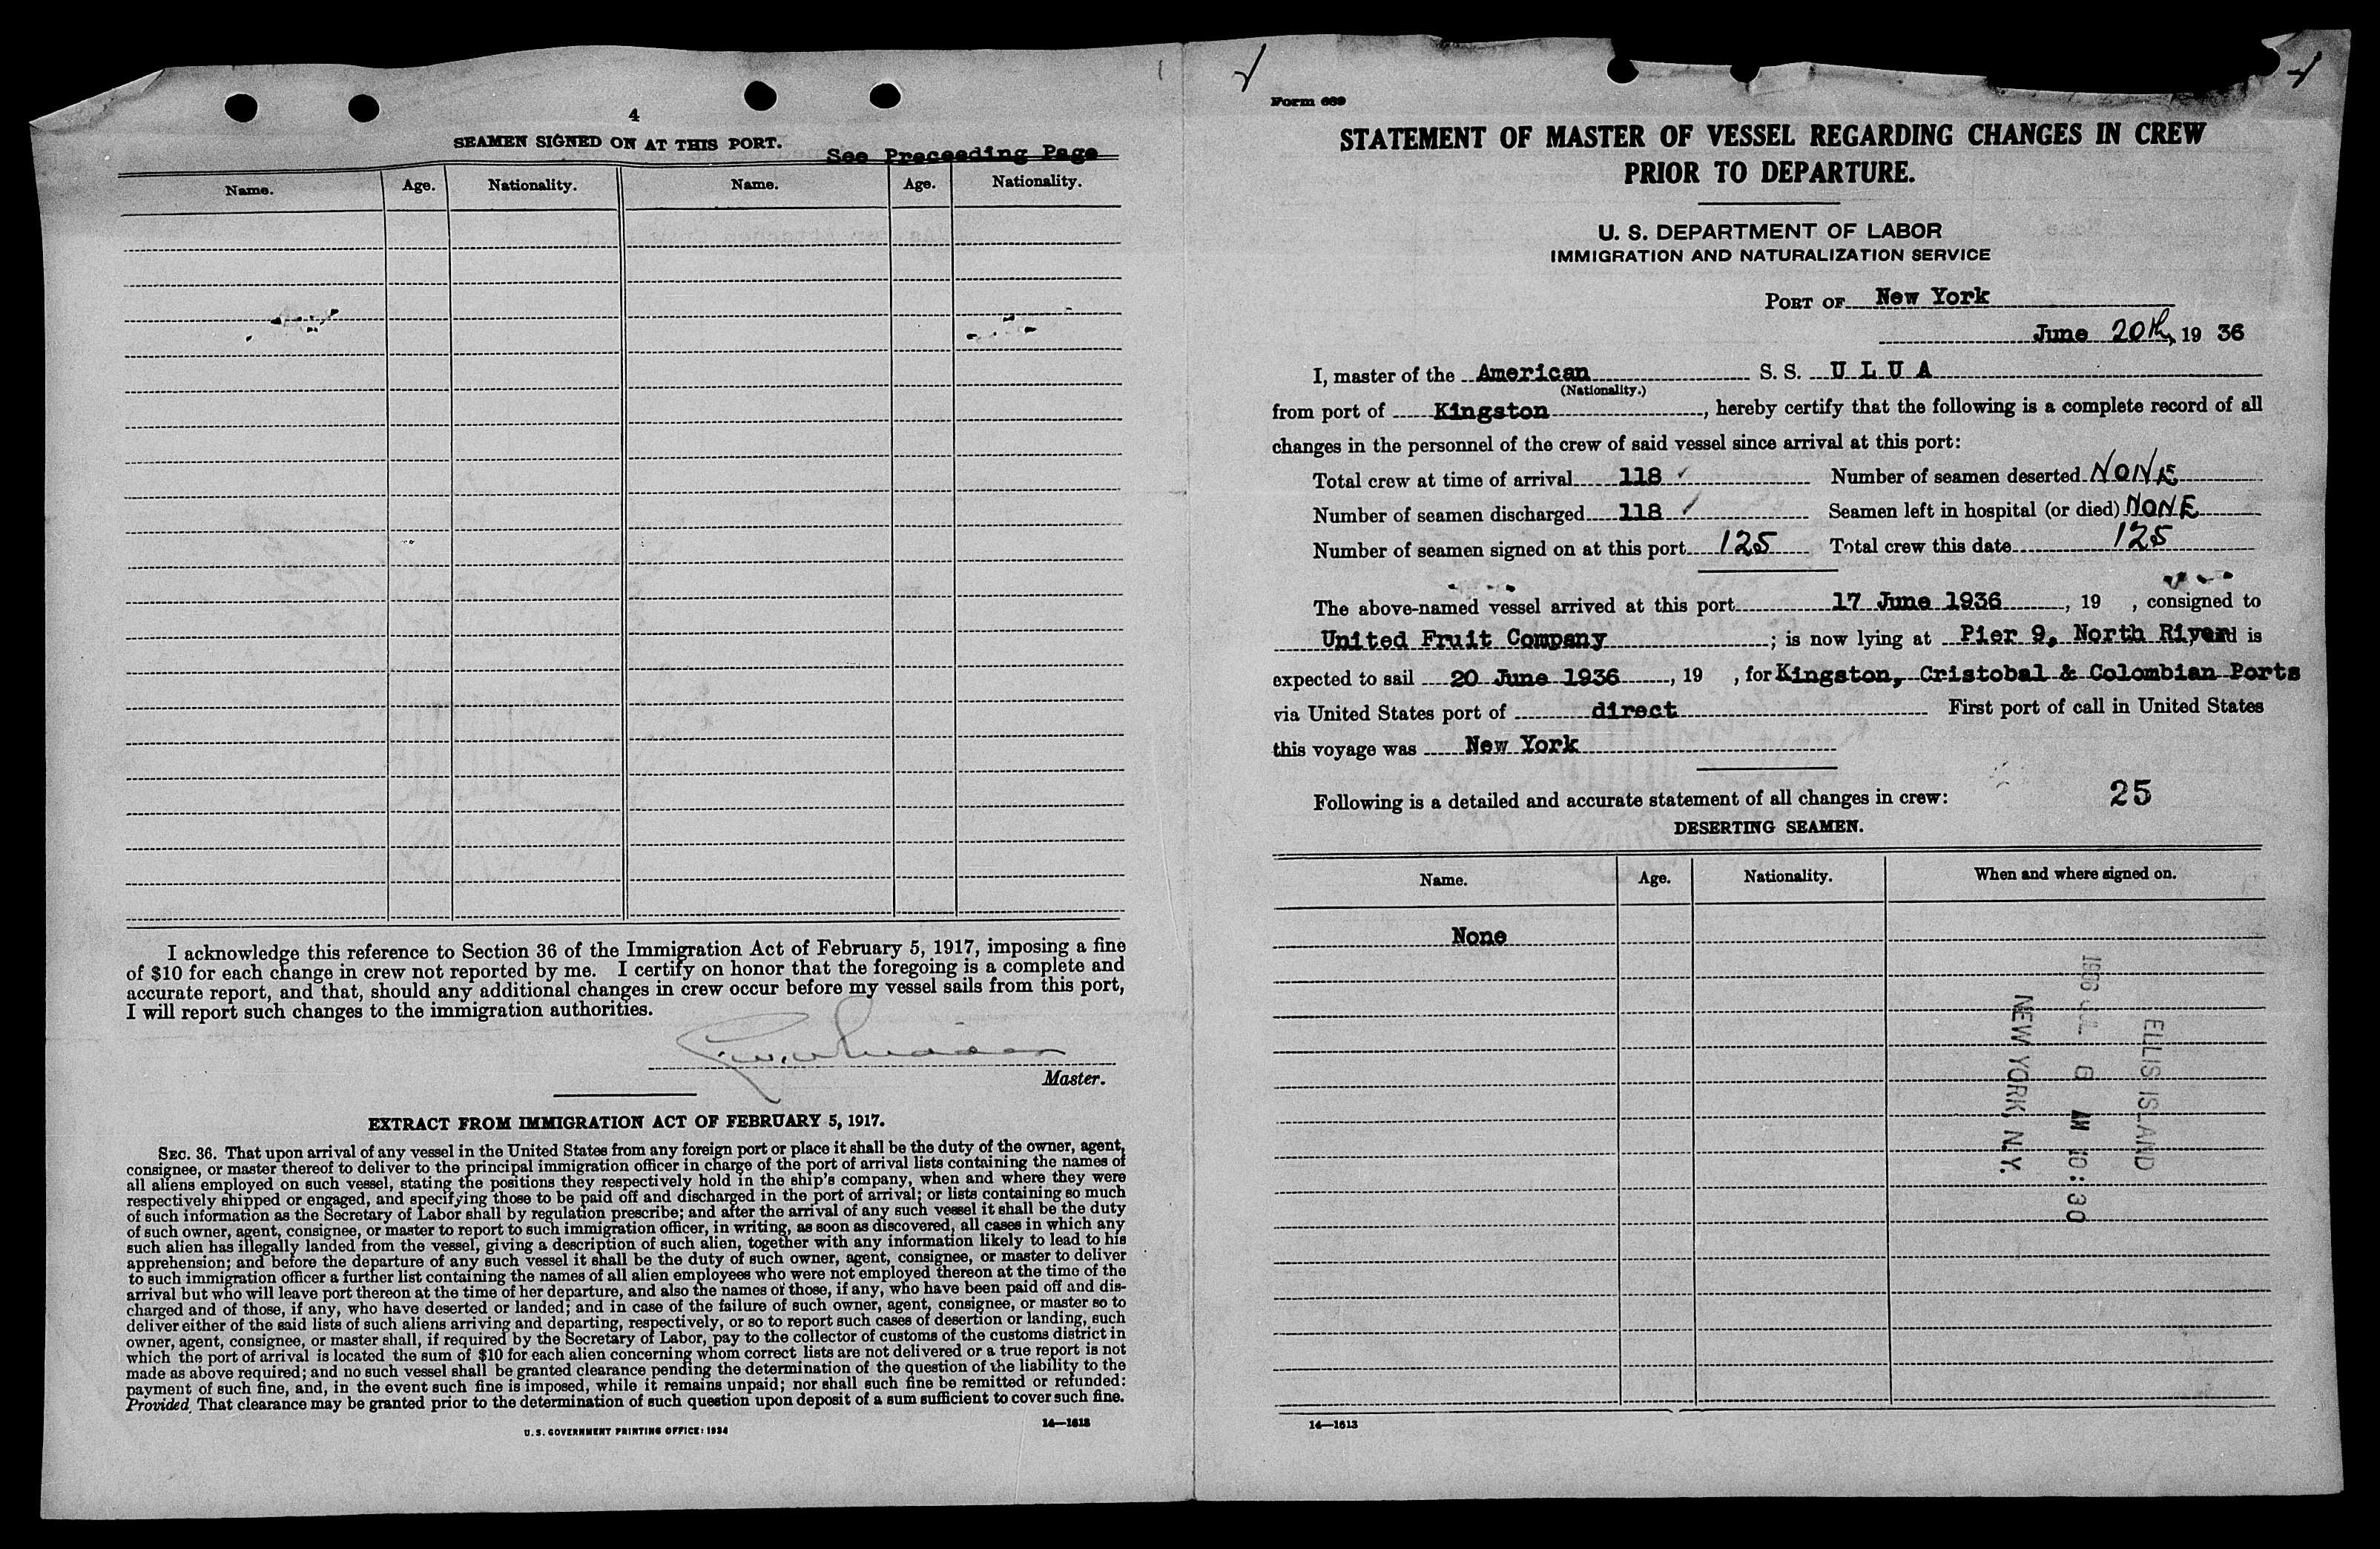 4
SEAMEN SIGNED ON AT THIS PORT.
See Preceeding Page
Name. Age. Nationality. Name. Age. Nationality.
I acknowledge this reference to Section 36 of the Immigration Act of February 5, 1917, imposing a fine
of $10 for each change in crew not reported by me. I certify on honor that the foregoing is a complete and
accurate report, and that, should any additional changes in crew occur before my vessel sails from this port,
I will report such changes to the immigration authorities.
Master.
EXTRACT FROM IMMIGRATION ACT OF FEBRUARY 5, 1917.
SEC. 36. That upon arrival of any vessel in the United States from any foreign port or place it shall be the duty of the owner, agent,
consignee, or master thereof to deliver to the principal immigration officer in charge of the port of arrival lists containing the names of
all aliens employed on such vessel, stating the positions they respectively hold in the ship's company, when and where they were
respectively shipped or engaged, and specifying those to be paid off and discharged in the port of arrival; or lists containing so much
of such information as the Secretary of Labor shall by regulation prescribe; and after the arrival of any such vessel it shall be the duty
of such owner, agent, consignee, or master to report to such immigration officer, in writing, as soon as discovered, all cases in which any
such alien has illegally landed from the vessel, giving a description of such alien, together with any information likely to lead to his
apprehension; and before the departure of any such vessel it shall be the duty of such owner, agent, consignee, or master to deliver
to such immigration officer a further list containing the names of all alien employees who were not employed thereon at the time of the
arrival but who will leave port thereon at the time of her departure, and also the names of those, if any, who have been paid off and dis-
charged and of those, if any, who have deserted or landed; and in case of the failure of such owner, agent, consignee, or master so to
deliver either of the said lists of such aliens arriving and departing, respectively, or so to report such cases of desertion or landing, such
owner, agent, consignee, or master shall, if required by the Secretary of Labor, pay to the collector of customs of the customs district in
which the port of arrival is located the sum of $10 for each alien concerning whom correct lists are not delivered or a true report is not
made as above required; and no such vessel shall be granted clearance pending the determination of the question of the liability to the
payment of such fine, and, in the event such fine is imposed, while it remains unpaid; nor shall such fine be remitted or refunded:
Provided, That clearance may be granted prior to the determination of such question upon deposit of a sum sufficient to cover such fine.
U. S. GOVERNMENT PRINTING OFFICE: 1934
14—1613
Form 689
STATEMENT OF MASTER OF VESSEL REGARDING CHANGES IN CREW
PRIOR TO DEPARTURE.
U. S. DEPARTMENT OF LABOR
IMMIGRATION AND NATURALIZATION SERVICE
PORT OF New York
June 20th, 19 36
I, master of the American S. S. U L U A
(Nationality.)
from port of Kingston, hereby certify that the following is a complete record of all
changes in the personnel of the crew of said vessel since arrival at this port:
Total crew at time of arrival 118 ✓ Number of seamen deserted NONE
Number of seamen discharged 118 ✓ Seamen left in hospital (or died) NONE
Number of seamen signed on at this port 125 Total crew this date 125
The above-named vessel arrived at this port 17 June 1936, 19 , consigned to
United Fruit Company; is now lying at Pier 9, North River and is
expected to sail 20 June 1936, 19 , for Kingston, Cristobal & Colombian Ports
via United States port of direct First port of call in United States
this voyage was New York
Following is a detailed and accurate statement of all changes in crew:
25
DESERTING SEAMEN.
Name. Age. Nationality. When and where signed on.
None
ELLIS ISLAND
1936 JUL 6 AM 10:30
NEW YORK, N.Y.
14—1613